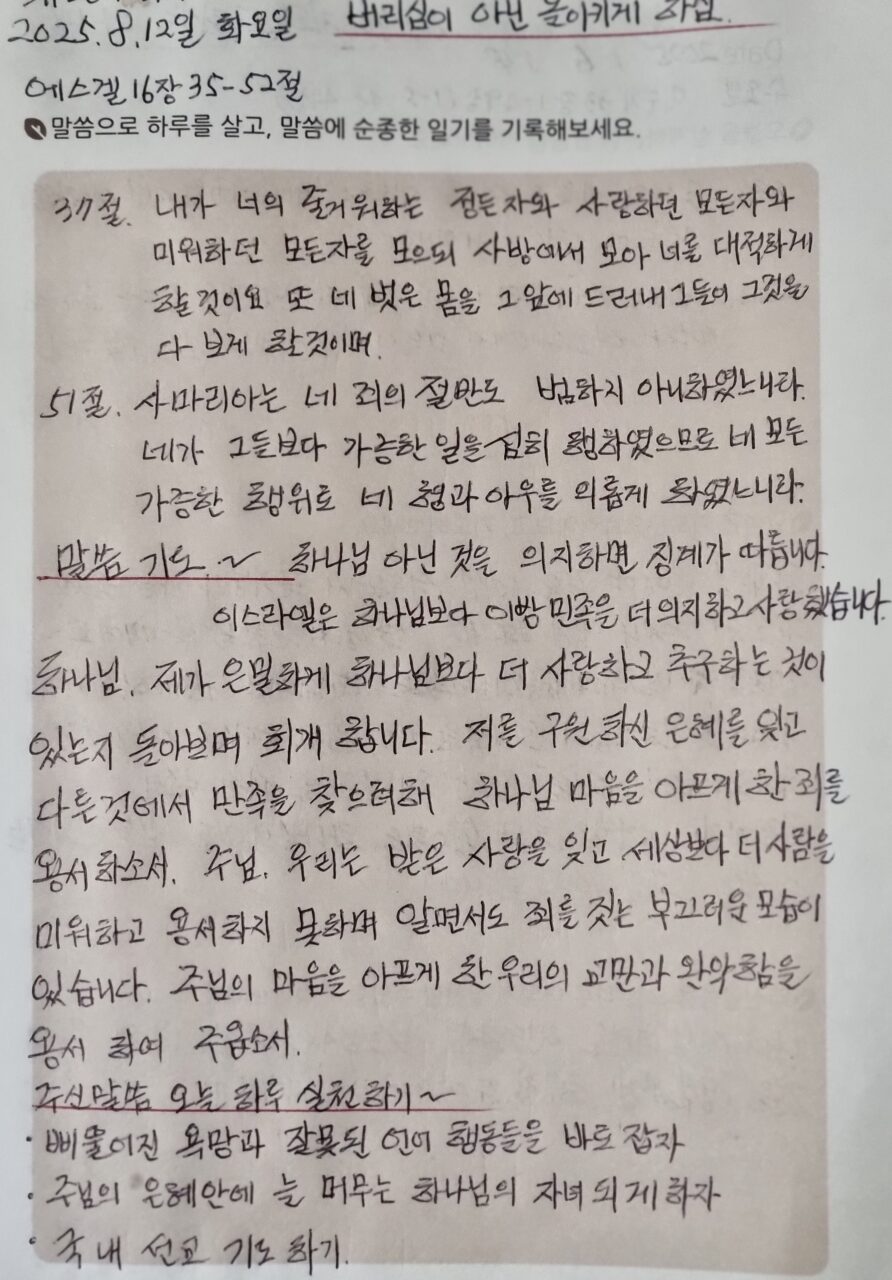 2025. 8. 12일 화요일 버리심이 아닌 돌이키게 하심.
에스겔 16장 35-52절
말씀으로 하루를 살고, 말씀에 순종한 일기를 기록해보세요.
37절. 내가 너의 즐거워하는 정든자와 사랑하던 모든자와
미워하던 모든자를 모으되 사방에서 모아 너를 대적하게
할것이요 또 네 벗은 몸을 그앞에 드러내 그들이 그것을
다 보게 할것이며.
51절. 사마리아는 네 죄의 절반도 범하지 아니하였느니라.
네가 그들보다 가증한 일을 심히 행하였으므로 네 모든
가증한 행위로 네 형과 아우를 의롭게 하였느니라.
말씀 기도.~ 하나님 아닌 것을 의지하면 징계가 따릅니다.
이스라엘은 하나님보다 이방 민족을 더 의지하고 사랑했습니다.
하나님. 제가 은밀하게 하나님보다 더 사랑하고 추구하는 것이
있는지 돌아보며 회개 합니다. 저를 구원하신 은혜를 잊고
다른것에서 만족을 찾으려해 하나님 마음을 아프게 한 죄를
용서하소서. 주님. 우리는 받은 사랑을 잊고 세상보다 더 사람을
미워하고 용서하지 못하며 알면서도 죄를 짓는 부끄러운 모습이
있습니다. 주님의 마음을 아프게 한 우리의 교만과 완악함을
용서 하여 주옵소서.
주신말씀 오늘 하루 실천하기~
· 삐뚤어진 욕망과 잘못된 언어 행동들을 바로 잡자
· 주님의 은혜안에 늘 머무는 하나님의 자녀 되게하자
· 국내 선교 기도하기.